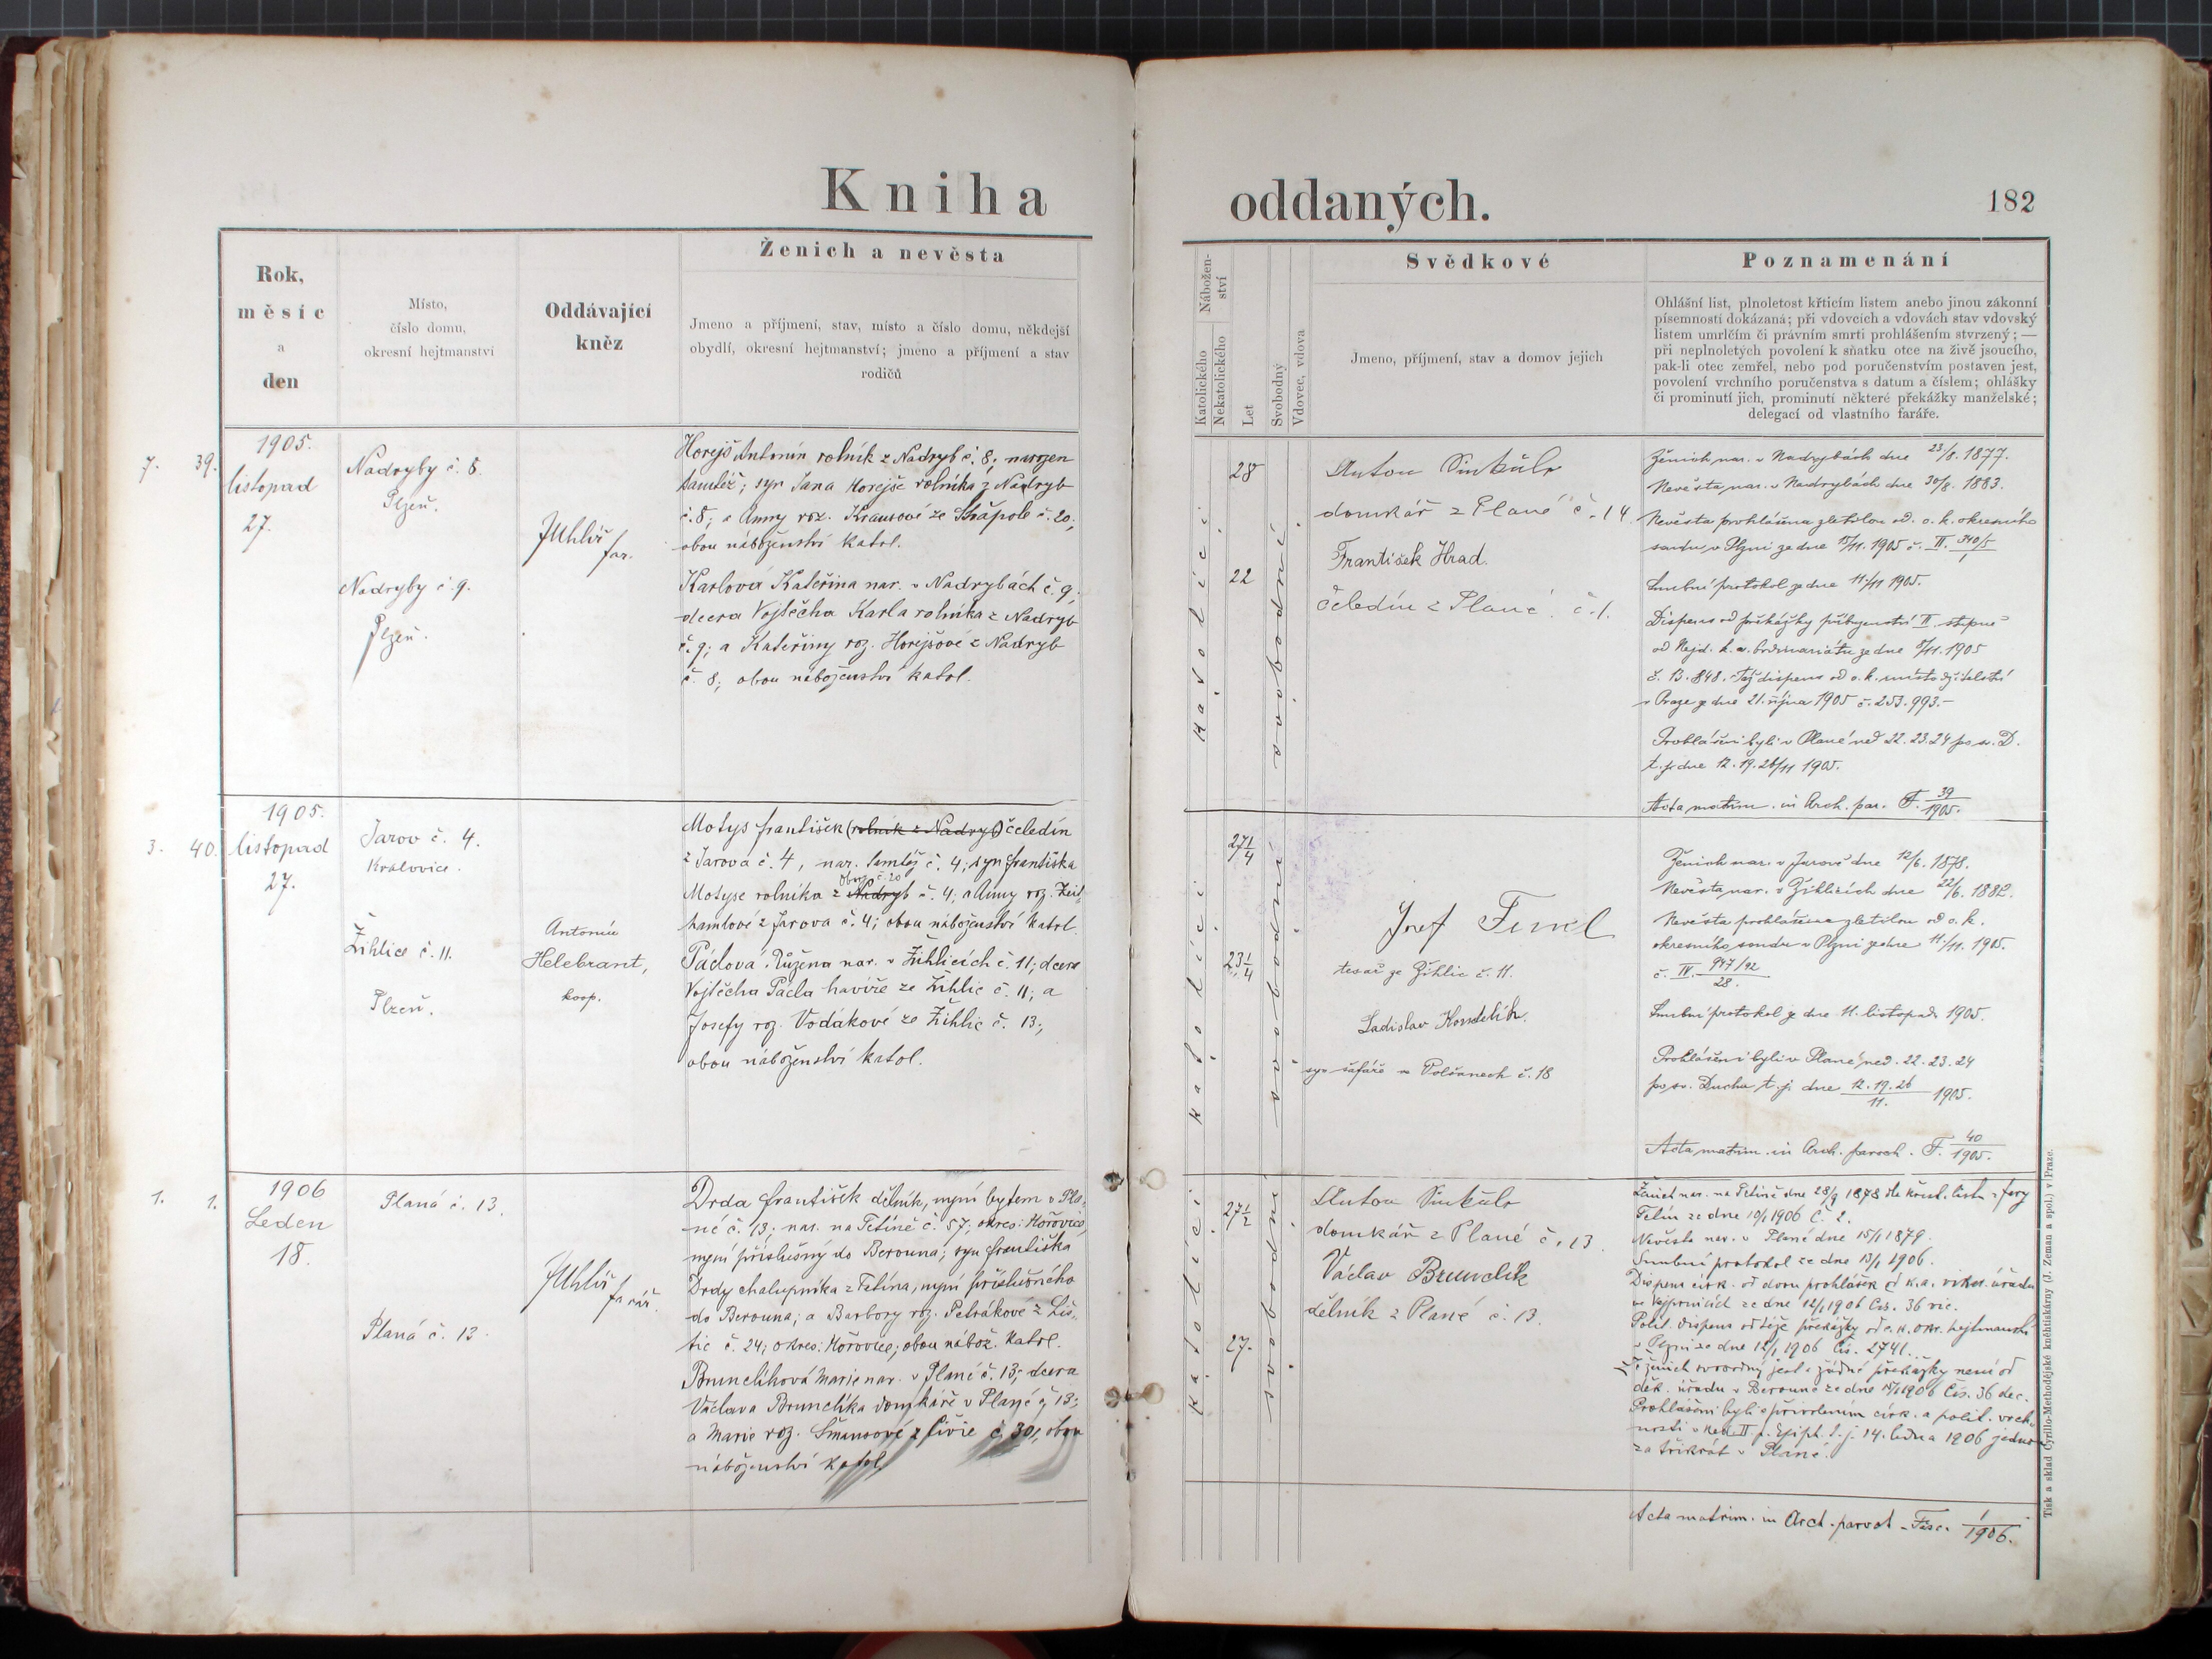 Kniha
oddaných.
182
Rok,
měsíc
a
den
Místo,
číslo domu,
okresní hejtmanství
Oddávající
kněz
Ženich a nevěsta
Jmeno a příjmení, stav, místo a číslo domu, někdejší
obydlí, okresní hejtmanství; jmeno a příjmení a stav
rodičů
Nábožen-
ství
Katolického
Nekatolického
Let
Svobodný
Vdovec, vdova
Svědkové
Jmeno, příjmení, stav a domov jejich
Poznamenání
Ohlášní list, plnoletost křticím listem anebo jinou zákonní
písemností dokázaná; při vdovcích a vdovách stav vdovský
listem umrlčím či právním smrti prohlášením stvrzený; —
při neplnoletých povolení k sňatku otce na živě jsoucího,
pak-li otec zemřel, nebo pod poručenstvím postaven jest,
povolení vrchního poručenstva s datum a číslem; ohlášky
či prominutí jich, prominutí některé překážky manželské;
delegací od vlastního faráře.
7. 39.
1905.
listopad
27.
Nadryby č. 8.
Plzeň.
Nadryby č. 9.
Plzeň.
JUhlíř
far.
Horejš Antonín rolník z Nadryb č. 8, narozen
tamtéž; syn Jana Horejše rolníka z Nadryb
č. 8; a Anny roz. Krausové ze Střapole č. 20;
obou náboženství katol.
Karlová Kateřina nar. v Nadrybách č. 9;
dcera Vojtěcha Karla rolníka z Nadryb
č. 9; a Kateřiny roz. Horejšové z Nadryb
č. 8; obou náboženství katol.
katolíci
28
22
svobodní
Anton Sinkule
domkář z Plané č. 14.
František Hrad.
čeledín z Plané č. 1.
Ženich nar. v Nadrybách dne 23/8. 1877.
Nevěsta nar. v Nadrybách dne 30/8. 1883.
Nevěsta prohlášena zletilou od c. k. okresního
soudu v Plzni ze dne 15/11. 1905 č. II. 340/5
1
Smluvní protokol ze dne 11./11 1905.
Dispens od překážky příbuzenství II. stupně
od Nejd. k. a. Ordinariátu ze dne 8/11. 1905
č. B. 848. Též dispens od c. k. místodržitelství
v Praze ze dne 21. října 1905 č. 253.993.–
Prohlášeni byli v Plané ned 22. 23. 24 po sv. D.
t. j. dne 12. 19. 26/11 1905.
Acta matrim. in Arch. par. F. 39
1905.
3. 40.
1905.
listopad
27.
Jarov č. 4.
Kralovice.
Žihlice č. 11.
Plzeň.
Antonín
Helebrant,
koop.
Motys František (rolník z Nadryb) čeledín
z Jarova č. 4, nar. tamtéž č. 4; syn Františka
č. 20
Motyse rolníka z Nadryb č. 4; a Anny roz. Zeit-
hamlové z Jarova č. 4; obou náboženství katol.
Páclová Růžena nar. v Žihlicích č. 11; dcera
Vojtěcha Pácla havíře ze Žihlic č. 11; a
Josefy roz. Vodákové ze Žihlic č. 13;
obou náboženství katol.
katolíci
27 1/4
23 1/4
svobodní
Josef
tesař ze Žihlic č. 11.
Ladislav Kondelík.
syn šafáře v č. 18
Ženich nar. v Jarově dne 12/6. 1878.
Nevěsta nar. v Žihlicích dne 22/6. 1882.
Nevěsta prohlášena zletilou od c. k.
okresního soudu v Plzni ze dne 11./11. 1905.
č. IV. 947/92
28.
Smluvní protokol ze dne 11. listopadu 1905.
Prohlášeni byli v Plané ned. 22. 23. 24
po sv. Duchu t. j. dne 12. 19. 26 1905.
11.
Acta matrim. in Arch. paroch. F. 40
1905.
1. 1.
1906
Leden
18.
Planá č. 13.
Planá č. 13.
JUhlíř
farář.
Drda František dělník, nyní bytem v Pla-
né č. 13; nar. na Tetíně č. 57; okres: Hořovice,
nyní příslušný do Berouna; syn Františka
Drdy chalupníka z Tetína, nyní příslušného
do Berouna; a Barbory roz. Petrákové z Liš-
tic č. 24; okres: Hořovice; obou nábož. katol.
Brunclíková Marie nar. v Plané č. 13; dcera
Václava Brunclíka domkáře v Plané č. 13;
a Marie roz. Šmausové z Čivic č. 30; obou
náboženství katol.
katolíci
27 1/2
27.
svobodní
Anton Sinkule
domkář z Plané č. 13.
Václav Brunclík
dělník z Plané č. 13.
Ženich nar. na Tetíně dne 28/9 1878 dle křest. listu z fary
Tetín ze dne 10/1 1906 č. 2.
Nevěsta nar. v Plané dne 15/1 1879.
Smluvní protokol ze dne 13/1 1906.
Dispens cirk. od dvou prohlášek od k. a. vikar. úřadu
ve Vejprnicích ze dne 12/1 1906 čís. 36 vic.
Polit. dispens od téže překážky od c. k. okr. hejtmanství
v Plzni ze dne 12/1 1906 čís. 2741.
Že ženich svobodný jest a žádné překážky není od
děk. úřadu v Berouně ze dne 15/1 1906 čís. 36 dec.
Prohlášeni byli s přivolením cirk. a polit. vrch-
nosti v Ned. II. p. Epiph. t. j. 14. ledna 1906 jednou
za třikrát v Plané.
Acta matrim. in Arch. paroch. Fasc. 1
1906.
Tisk a sklad Cyrillo-Methodějské knihtiskárny (J. Zeman a spol.) v Praze.